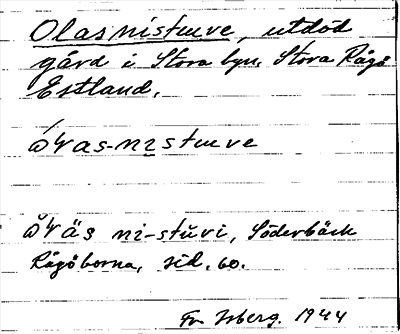 Olasnistuve, utdöd
gård i Stora byn, Stora Rågö
Estland.
óɽas-nistuve
ŏɽäs ni-stŭvi, Söderbäck
Rågöborna, sid. 60.
Fr Isberg. 1944